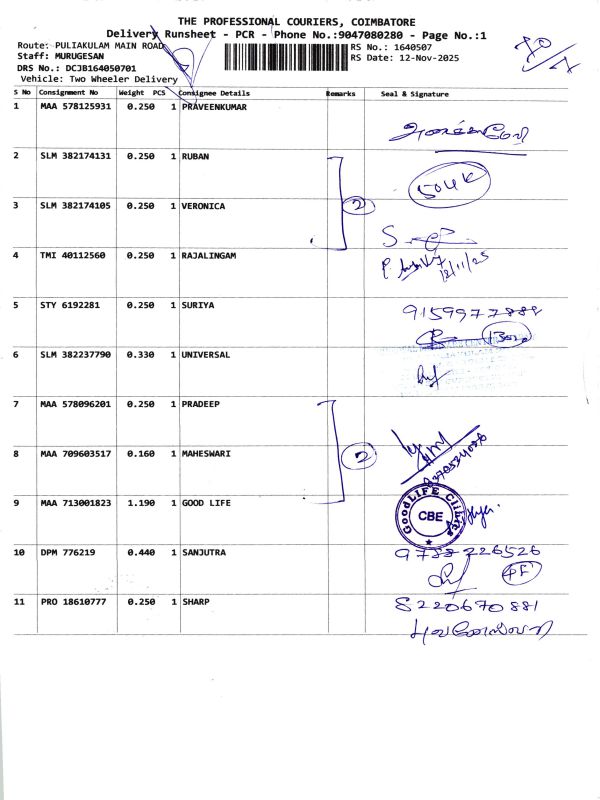 THE PROFESSIONAL COURIERS, COIMBATORE
Delivery Runsheet - PCR - Phone No.:9047080280 - Page No.:1
Route: PULIAKULAM MAIN ROAD
RS No.: 1640507
Staff: MURUGESAN
RS Date: 12-Nov-2025
DRS No.: DCJB164050701
Vehicle: Two Wheeler Delivery
S No Consignment No Weight PCS Consignee Details Remarks Seal & Signature
1 MAA 578125931 0.250 1 PRAVEENKUMAR
2 SLM 382174131 0.250 1 RUBAN
504K
2
3 SLM 382174105 0.250 1 VERONICA
4 TMI 40112560 0.250 1 RAJALINGAM
12/11/25
5 STY 6192281 0.250 1 SURIYA
9159977888
6 SLM 382237790 0.330 1 UNIVERSAL
7 MAA 578096201 0.250 1 PRADEEP
8 MAA 709603517 0.160 1 MAHESWARI
2
9 MAA 713001823 1.190 1 GOOD LIFE
GoodLIFE Clinics
CBE
10 DPM 776219 0.440 1 SANJUTRA
9788226526
11 PRO 18610777 0.250 1 SHARP
8220670881